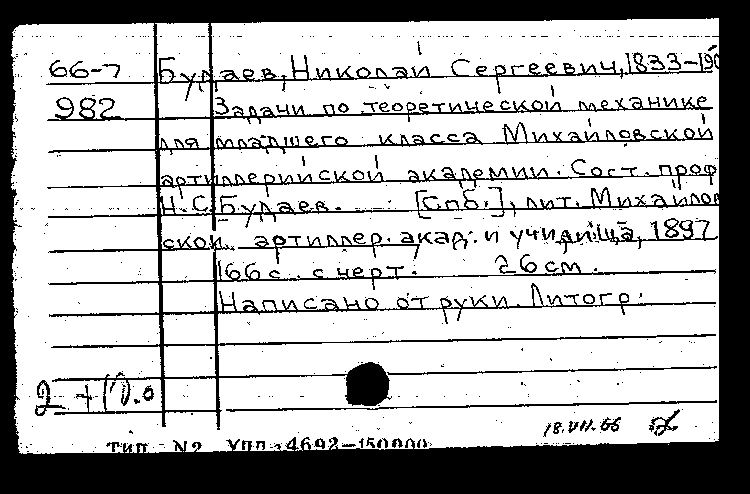 66-7 Будаев, Николай Сергеевич, 1833-190
982 Задачи по теоретической механике
для младшего класса Михайловской
артиллерийской академии. Сост. проф
Н.С. Будаев. [Спб.], лит. Михайлов
ской артиллер. акад. и училища, 1897
166 с. с черт. 26 см.
Написано от руки. Литогр.
18.VII.66
ТИП. N2 УПП з 4692-150000